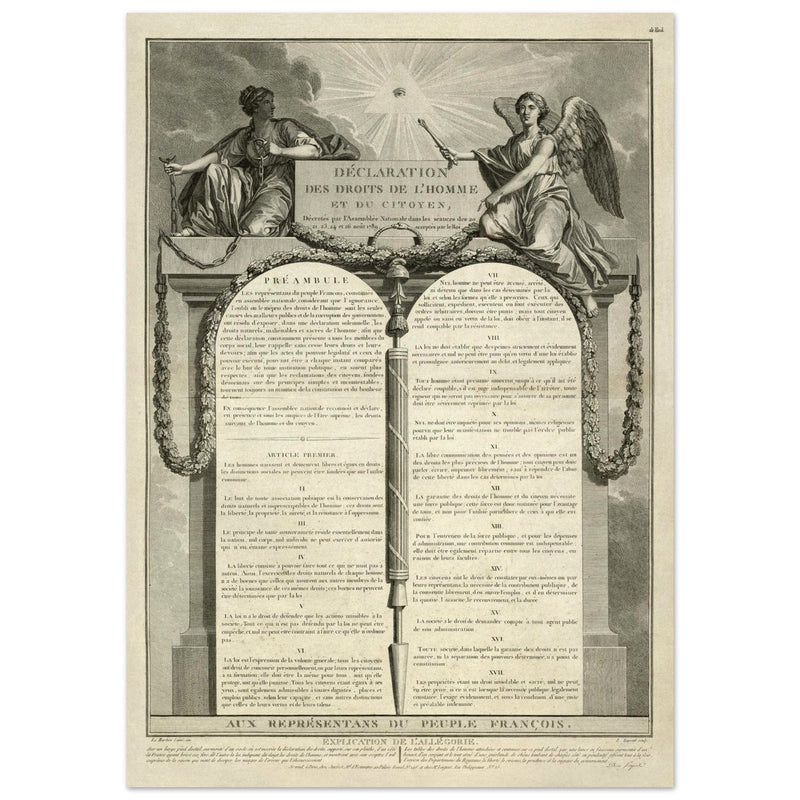 DÉCLARATION
DES DROITS DE L'HOMME
ET DU CITOYEN,
Décrétés par l'Assemblée Nationale dans les séances des 20
21, 23, 24 et 26 août 1789, acceptés par le Roi
PRÉAMBULE
LES représentans du peuple François, constitués
en assemblée nationale, considérant que l'ignorance,
l'oubli ou le mépris des droits de l'homme sont les seules
causes des malheurs publics et de la corruption des gouvernemens
ont résolu d'exposer, dans une déclaration solemnelle, les
droits naturels, inaliénables et sacrés de l'homme; afin que
cette déclaration, constamment présente à tous les membres du
corps social, leur rappelle sans cesse leurs droits et leurs
devoirs; afin que les actes du pouvoir législatif et ceux du
pouvoir exécutif, pouvant être à chaque instant comparés
avec le but de toute institution politique, en soient plus
respectés; afin que les reclamations des citoyens, fondées
désormais sur des principes simples et incontestables,
tournent toujours au maintien de la constitution et du bonheur
de tous.
EN conséquence, l'assemblée nationale reconnoit et déclare,
en présence et sous les auspices de l'Être suprême, les droits
suivans de l'homme et du citoyen.
ARTICLE PREMIER.
LES hommes naissent et demeurent libres et égaux en droits,
les distinctions sociales ne peuvent être fondées que sur l'utilité
commune.
II
LE but de toute association politique est la conservation des
droits naturels et imprescriptibles de l'homme; ces droits sont
la liberté, la propriété, la sureté et la résistance à l'oppression.
III
LE principe de toute souveraineté réside essentiellement dans
la nation, nul corps, nul individu ne peut exercer d'autorité
qui n'en émane expressément.
IV
LA liberté consiste à pouvoir faire tout ce qui ne nuit pas à
autrui. Ainsi, l'exercice des droits naturels de chaque homme
n'a de bornes que celles qui assurent aux autres membres de la
société la jouissance de ces mêmes droits; ces bornes ne peuvent
être déterminées que par la loi
V
LA loi n'a le droit de défendre que les actions nuisibles à la
société. Tout ce qui n'est pas défendu par la loi ne peut être
empêché, et nul ne peut être contraint à faire ce qu'elle n'ordonne
pas
VI
LA loi est l'expression de la volonté générale; tous les citoyens
ont droit de concourir personnellement, ou par leurs représentans,
à sa formation; elle doit être la même pour tous, soit qu'elle
protege, soit qu'elle punisse. Tous les citoyens étant égaux à ses
yeux, sont également admissibles à toutes dignités, places et
emplois publics, selon leur capacité, et sans autres distinctions
que celles de leurs vertus et de leurs talens.
VII
NUL homme ne peut être accusé, arrêté,
ni détenu que dans les cas déterminés par la
loi, et selon les formes qu'elle a prescrites. Ceux qui
sollicitent, expédient, exécutent ou font exécuter des
ordres arbitraires, doivent être punis; mais tout citoyen
appelé ou saisi en vertu de la loi, doit obéir à l'instant, il se
rend coupable par la résistance.
VIII
LA loi ne doit établir que des peines strictement et évidemment
nécessaires et nul ne peut être puni qu'en vertu d'une loi établie
et promulguée antérieurement au délit, et légalement appliquée.
IX
TOUT homme étant présumé innocent jusqu'à ce qu'il ait été
déclaré coupable, s'il est jugé indispensable de l'arrêter, toute
rigueur qui ne seroit pas nécessaire pour s'assurer de sa personne
doit être sévèrement réprimée par la loi
X
NUL ne doit être inquiété pour ses opinions, mêmes religieuses
pourvu que leur manifestation ne trouble pas l'ordre public
établi par la loi
XI
LA libre communication des pensées et des opinions est un
des droits les plus précieux de l'homme; tout citoyen peut donc
parler, écrire, imprimer librement; sauf à répondre de l'abus
de cette liberté dans les cas déterminés par la loi
XII
LA garantie des droits de l'homme et du citoyen nécessite
une force publique; cette force est donc instituée pour l'avantage
de tous, et non pour l'utilité particulière de ceux à qui elle est
confiée
XIII
POUR l'entretien de la force publique, et pour les dépenses
d'administration, une contribution commune est indispensable;
elle doit être également répartie entre tous les citoyens, en
raison de leurs facultés
XIV
LES citoyens ont le droit de constater par eux-mêmes ou par
leurs représentans, la nécessité de la contribution publique, de
la consentir librement, d'en suivre l'emploi, et d'en déterminer
la quotité, l'assiette, le recouvrement, et la durée
XV
LA société a le droit de demander compte à tout agent public
de son administration
XVI
TOUTE société, dans laquelle la garantie des droits n'est pas
assurée, ni la séparation des pouvoirs déterminée, n'a point de
constitution.
XVII
LES propriétés étant un droit inviolable et sacré, nul ne peut
en être privé, si ce n'est lorsque la nécessité publique, légalement
constatée, l'exige évidemment, et sous la condition d'une juste
et préalable indemnité.
AUX REPRÉSENTANS DU PEUPLE FRANÇOIS.
EXPLICATION DE L'ALLÉGORIE.